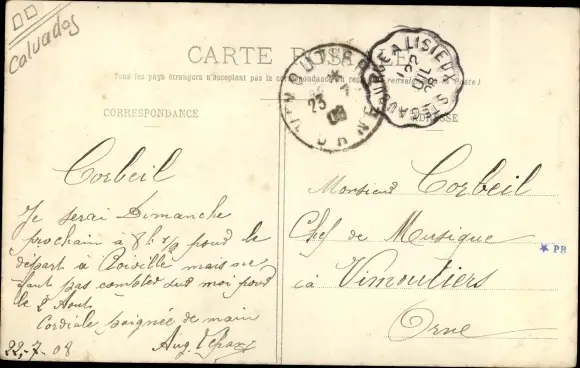 Calvados
CARTE POSTALE
Tous les pays étrangers n'acceptent pas la correspondance au recto (se renseigner à la Poste)
CORRESPONDANCE
ADRESSE
Corbeil
Je serai Dimanche
prochain à 8 h. 1/2 pour le
départ à mais ne
faut pas compter sur moi pour
le 2 Août
Cordiale poignée de main
Aug.
22-7-08
Monsieur Corbeil
Chef de Musique
à Vimoutiers
Orne
23
ORNE
A LISIEUX
22
JUIL
08
★ PB